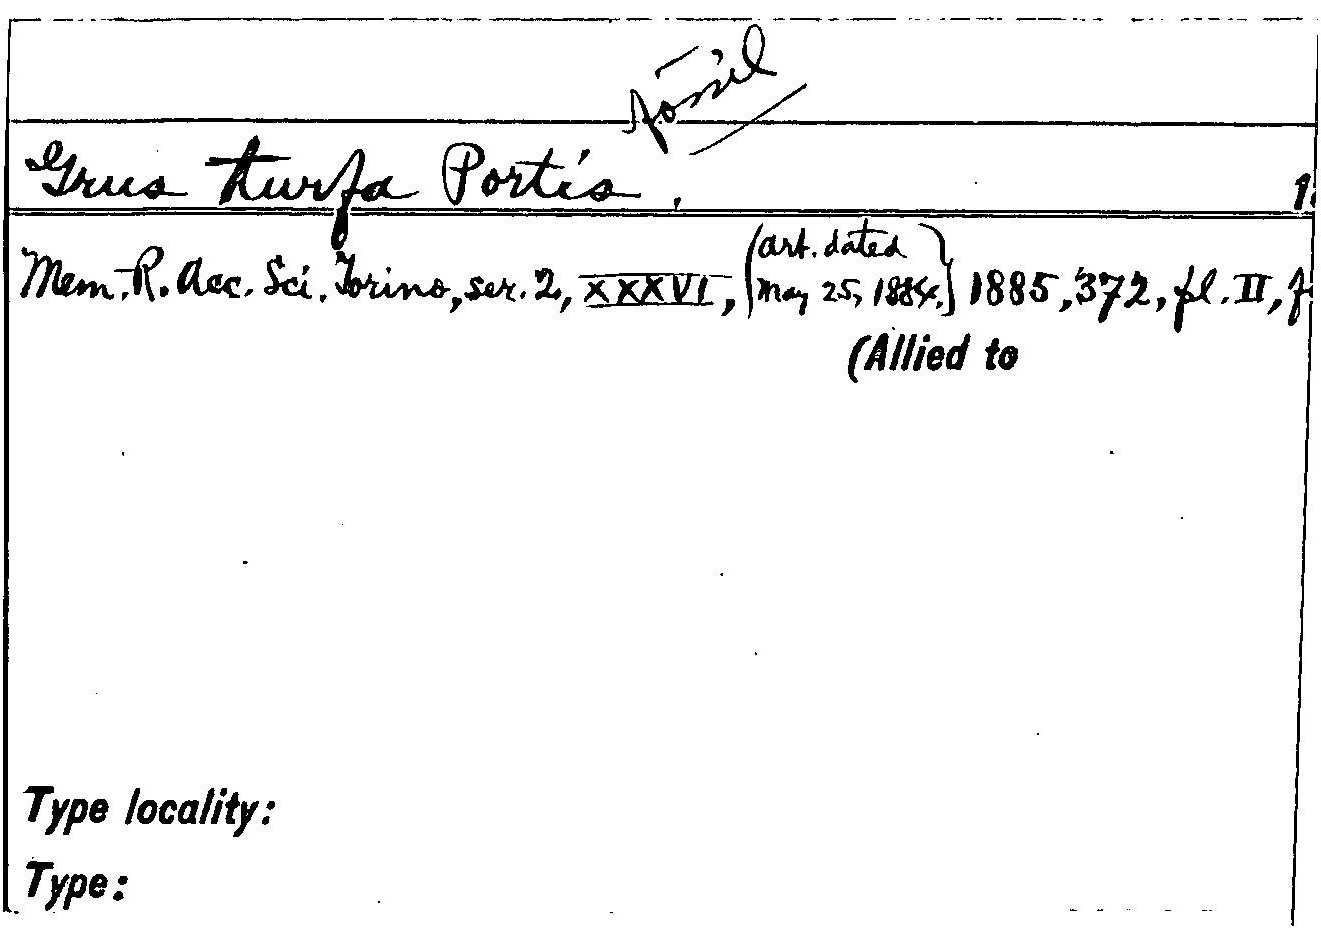 fossil
Grus turfa Portis. 1
Mem. R. Acc. Sci. Torino, ser. 2, XXXVI, (art. dated May 25, 1884.) 1885, 372, pl. II, f
(Allied to
Type locality:
Type: